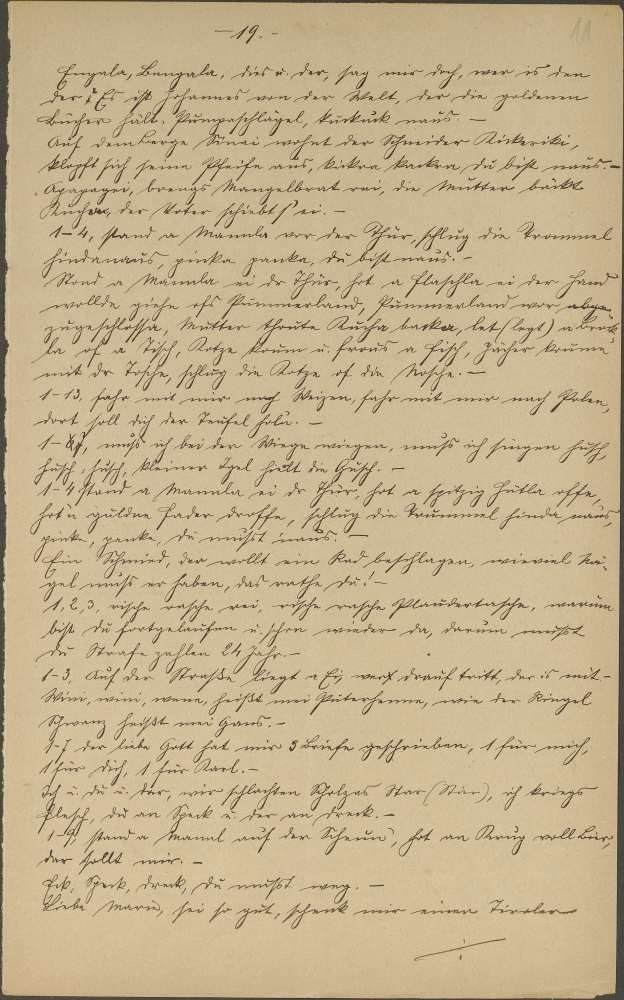 - 19. -
11
Engala, Bengala, dies u. der, sag mir doch, wer is den
der? Es ist Johannes von der Welt, der die goldenen
Bücher hält. Pumpaschlägel, kuckuck naus. -
Auf dem Berge Sinai wohnt der Schneider Kickeriki,
klopft sich seine Pfeife aus, kickra kackra, du bist naus. -
Apapagei, brengs Mangelbrat rei, die Mutter bäckt
Kucha, der Voter schiebt s' ei. -
1-4, stand a Mannla vor der Thür, schlug die Trommel
hindanaus, pinka panka, du bist naus. -
Stond a Mannla ei dr Thür, hot a Flaschla ei der Hand
wollde giehn ofs Pummerland, Pummerland wor
zugeschlossa, Mutter thoute Kucha backa, let (legt) a Breck-
la of a Tisch, Kotze koum u. fraus a Fisch, Jächer koume
mit dr Tosche, schlug die Kotze of die Nosche. -
1-13, fahr mit mir nach Weizen, fahr mit mir nach Polen,
dort soll dich der Teufel hol'n. -
1-7, muß ich bei der Wiege wiegen, muß ich singen husch,
husch, husch, kleiner Igel hält die Gusch. -
1-4 stand a Mannla ei dr Thür, hot a spitzig Hutla offe,
hot'n güldne Fader droffe, schlug die Traummel hinda naus,
pinke, panke, du mußt naus. -
Ein Schmied, der wollt ein Rad beschlagen, wieviel Nä-
gel muß er haben, das rathe du! -
1, 2, 3, rische rasche rei, rische rasche Plaudertasche, warum
bist du fortgelaufen u. schon wieder da, darum mußt
du Strafe zahlen 24 Jahr. -
1-3, Auf der Straße liegt a Ei, werf drauf tritt, der is mit -
Wini, wini, wenn, heißt mei Puterhenne, wie der Ringel
Schwanz heißt mei Gans. -
1-7 der liebe Gott hat mir 3 Briefe geschrieben, 1 für mich,
1 für dich, 1 für Karl. -
Ich u. du u. dar, wir schlachten Scholzas Star (Stier), ich kriegs
Flesch, du an Speck u. der an Dreck. -
1-9, stand a Mannl auf der Scheun', hot an Krug voll Bier,
der sollt mir. -
Eck, Speck, Dreck, du mußt weg. -
Liebe Marie, sei so gut, schenk mir einen Tiroler